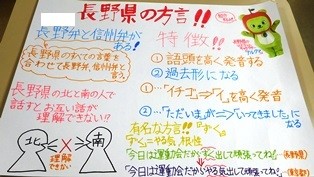 長野県の方言!!
長野弁と信州弁が
ある!
長野県のすべての言葉を
合わせて長野弁、信州弁と
言う
長野県の北と南の人で
話すとお互い話が
理解できない!?
北
南
理解
できない
特徴!!
① 語頭を高く発音する
② 過去形になる
①…「イチゴ」→「イ」を高く発音
②…「ただいま」が「いってきました」に
なる
有名な方言!!『ずく』
『ずく』=やる気、根性
「今日は運動会だからずく出して頑張ってね」(長野県)
「今日は運動会だからやる気出して頑張ってね」(東京都)